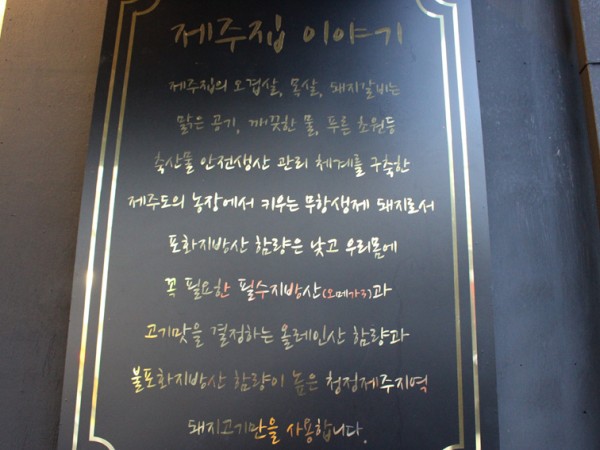 제주집 이야기
제주집의 오겹살, 목살, 돼지갈비는
맑은 공기, 깨끗한 물, 푸른 초원등
축산물 안전생산 관리 체계를 구축한
제주도의 농장에서 키우는 무항생제 돼지로서
포화지방산 함량은 낮고 우리몸에
꼭 필요한 필수지방산(오메가3)과
고기맛을 결정하는 올레인산 함량과
불포화지방산 함량이 높은 청정제주지역
돼지고기만을 사용합니다.